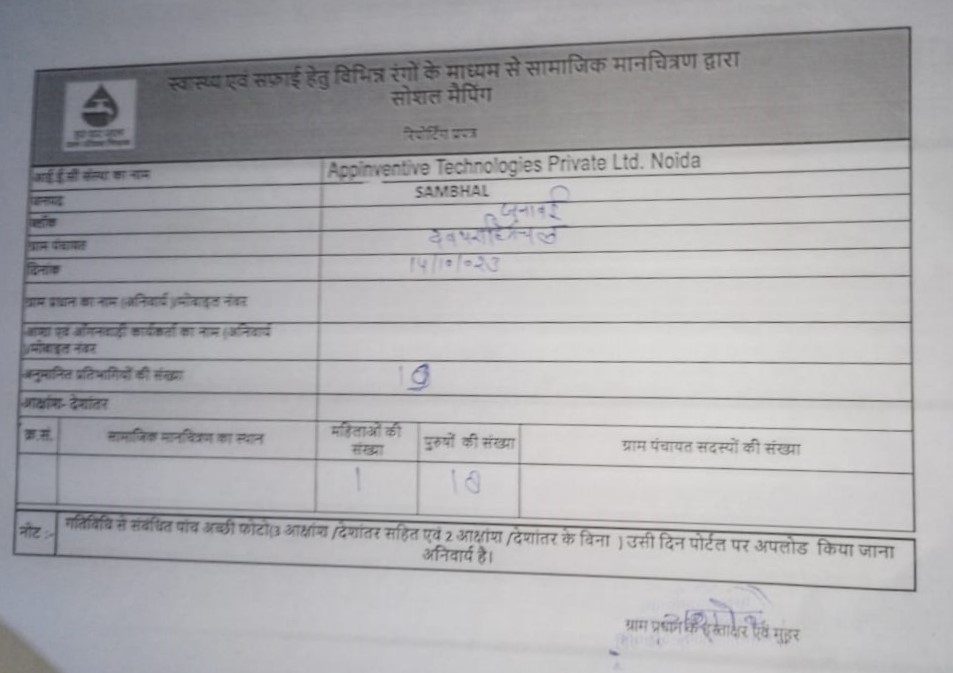 स्वास्थ्य एवं सफ़ाई हेतु विभिन्न रंगों के माध्यम से सामाजिक मानचित्रण द्वारा
सोशल मैपिंग
रिपोर्टिंग प्रपत्र
आई.ई.सी संस्था का नाम Appinventive Technologies Private Ltd. Noida
जनपद SAMBHAL
ब्लॉक जुनावई
ग्राम पंचायत
दिनांक
ग्राम प्रधान का नाम (अनिवार्य )/मोबाइल नंबर
आशा एवं आँगनवाड़ी कार्यकर्ता का नाम (अनिवार्य
)/मोबाइल नंबर
अनुमानित प्रतिभागियों की संख्या
आक्षांश- देशांतर
क्र.सं. सामाजिक मानचित्रण का स्थान महिलाओं की संख्या पुरुषों की संख्या ग्राम पंचायत सदस्यों की संख्या
1
नोट :- गतिविधि से संबंधित पांच अच्छी फोटो(3 आक्षांश /देशांतर सहित एवं 2 आक्षांश /देशांतर के बिना ) उसी दिन पोर्टल पर अपलोड किया जाना
अनिवार्य है।
ग्राम प्रधान के हस्ताक्षर एवं मुहर